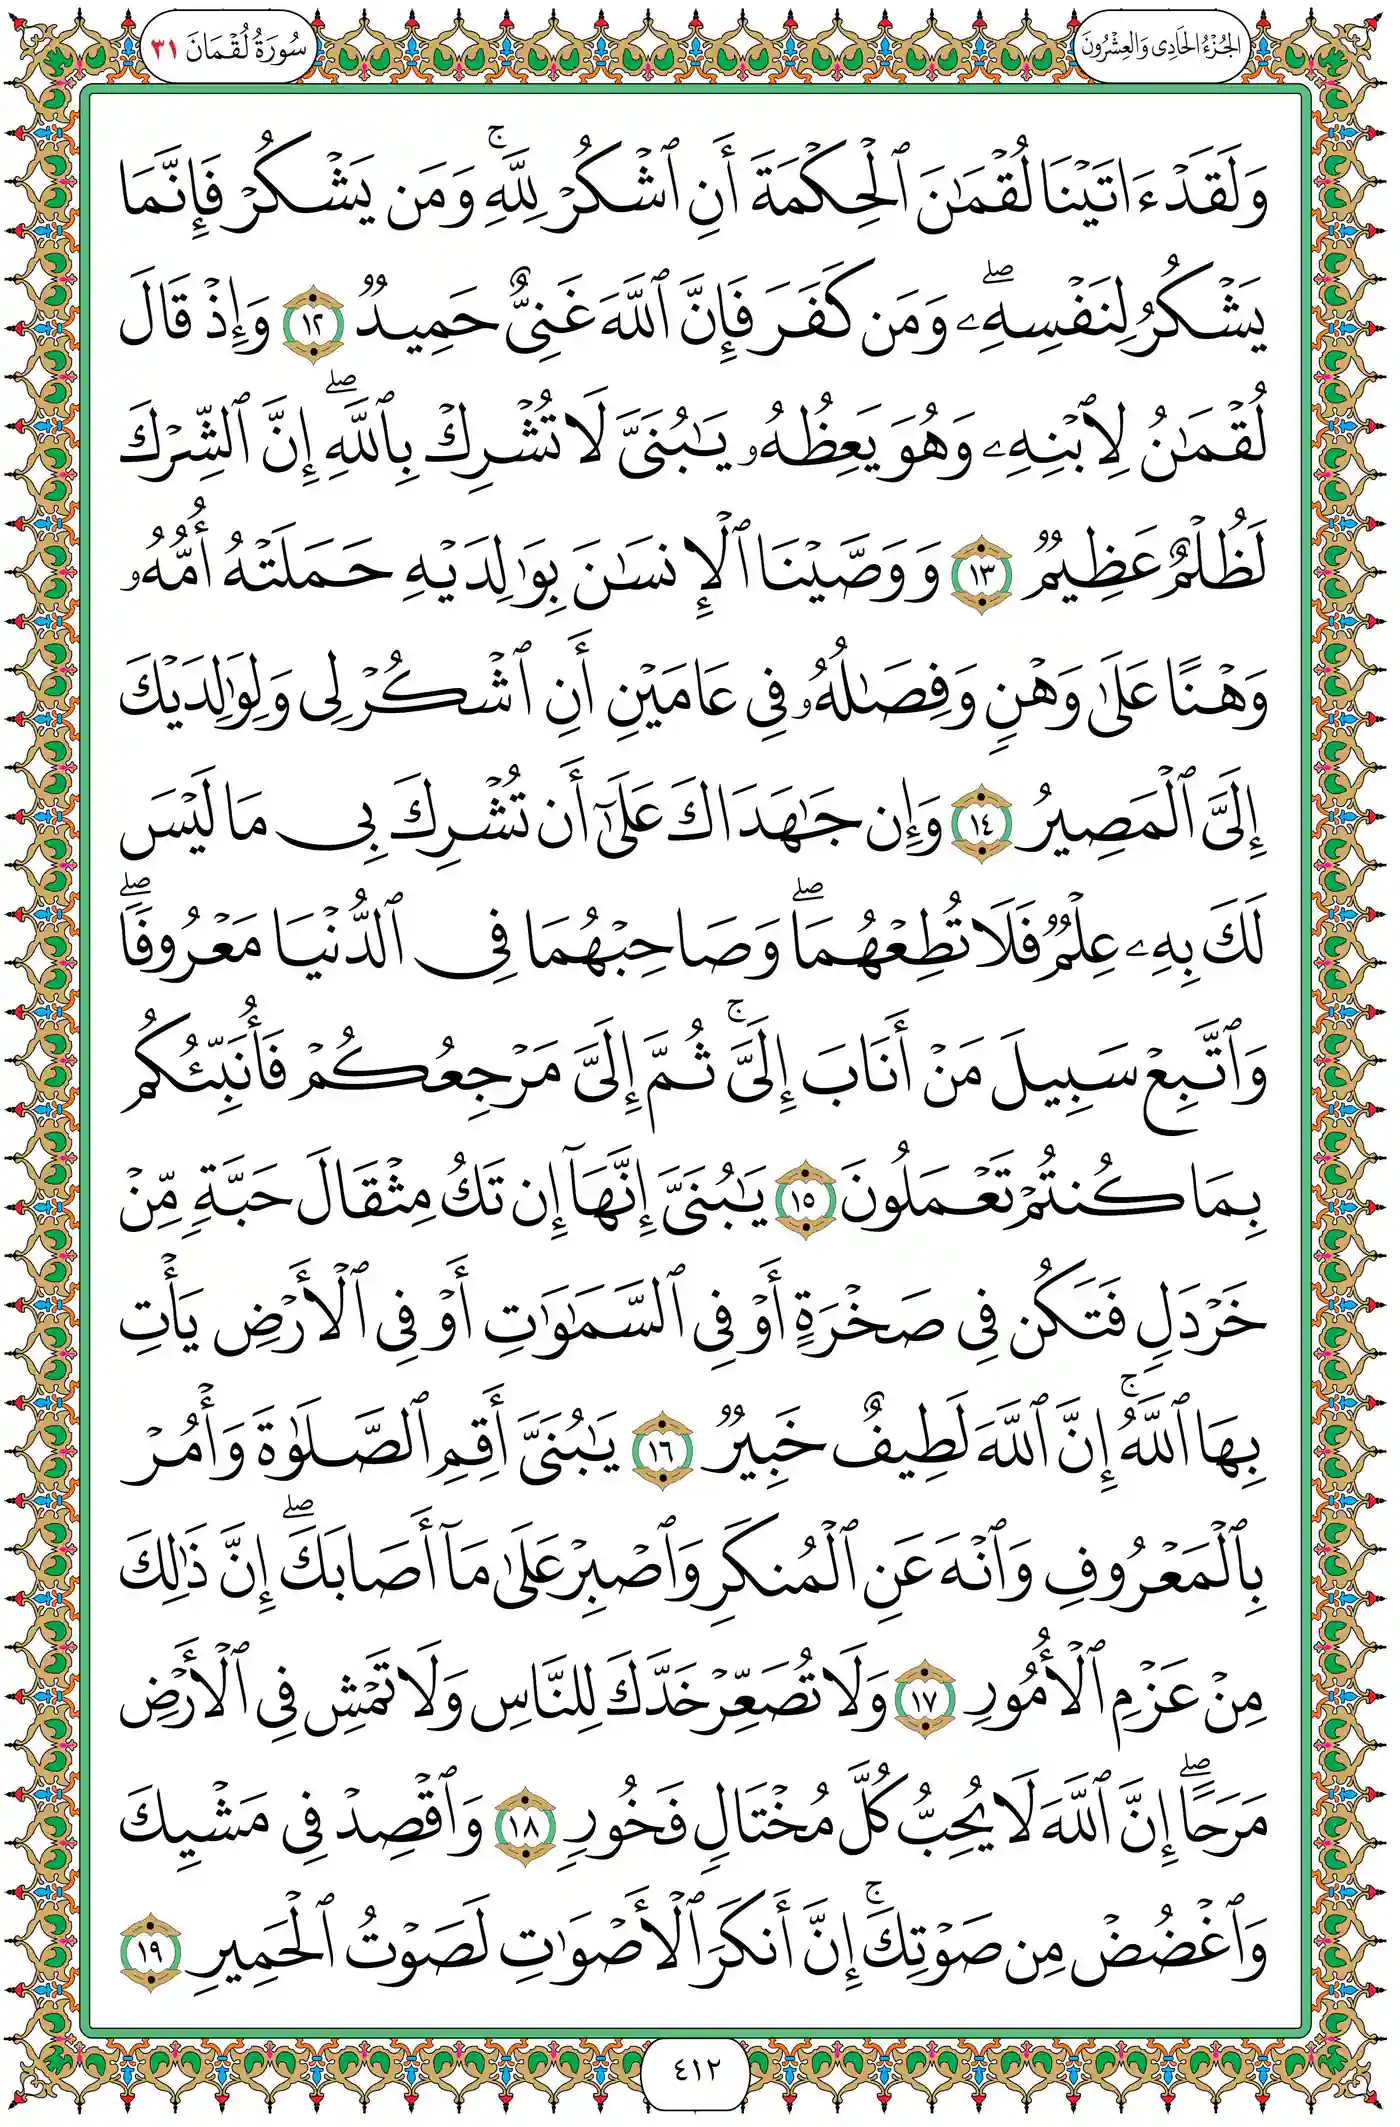 الجُزْءُ الحَادِى وَالعِشْرُونَ
سُورَةُ لُقْمَانَ ٣١
وَلَقَدْ ءَاتَيْنَا لُقْمَٰنَ ٱلْحِكْمَةَ أَنِ ٱشْكُرْ لِلَّهِۚ وَمَن يَشْكُرْ فَإِنَّمَا
يَشْكُرُ لِنَفْسِهِۦۖ وَمَن كَفَرَ فَإِنَّ ٱللَّهَ غَنِىٌّ حَمِيدٌ ١٢ وَإِذْ قَالَ
لُقْمَٰنُ لِٱبْنِهِۦ وَهُوَ يَعِظُهُۥ يَٰبُنَىَّ لَا تُشْرِكْ بِٱللَّهِۖ إِنَّ ٱلشِّرْكَ
لَظُلْمٌ عَظِيمٌ ١٣ وَوَصَّيْنَا ٱلْإِنسَٰنَ بِوَٰلِدَيْهِ حَمَلَتْهُ أُمُّهُۥ
وَهْنًا عَلَىٰ وَهْنٍ وَفِصَٰلُهُۥ فِى عَامَيْنِ أَنِ ٱشْكُرْ لِى وَلِوَٰلِدَيْكَ
إِلَىَّ ٱلْمَصِيرُ ١٤ وَإِن جَٰهَدَاكَ عَلَىٰٓ أَن تُشْرِكَ بِى مَا لَيْسَ
لَكَ بِهِۦ عِلْمٌ فَلَا تُطِعْهُمَاۖ وَصَاحِبْهُمَا فِى ٱلدُّنْيَا مَعْرُوفًاۖ
وَٱتَّبِعْ سَبِيلَ مَنْ أَنَابَ إِلَىَّۚ ثُمَّ إِلَىَّ مَرْجِعُكُمْ فَأُنَبِّئُكُم
بِمَا كُنتُمْ تَعْمَلُونَ ١٥ يَٰبُنَىَّ إِنَّهَآ إِن تَكُ مِثْقَالَ حَبَّةٍ مِّنْ
خَرْدَلٍ فَتَكُن فِى صَخْرَةٍ أَوْ فِى ٱلسَّمَٰوَٰتِ أَوْ فِى ٱلْأَرْضِ يَأْتِ
بِهَا ٱللَّهُۚ إِنَّ ٱللَّهَ لَطِيفٌ خَبِيرٌ ١٦ يَٰبُنَىَّ أَقِمِ ٱلصَّلَوٰةَ وَأْمُرْ
بِٱلْمَعْرُوفِ وَٱنْهَ عَنِ ٱلْمُنكَرِ وَٱصْبِرْ عَلَىٰ مَآ أَصَابَكَۖ إِنَّ ذَٰلِكَ
مِنْ عَزْمِ ٱلْأُمُورِ ١٧ وَلَا تُصَعِّرْ خَدَّكَ لِلنَّاسِ وَلَا تَمْشِ فِى ٱلْأَرْضِ
مَرَحًاۖ إِنَّ ٱللَّهَ لَا يُحِبُّ كُلَّ مُخْتَالٍ فَخُورٍ ١٨ وَٱقْصِدْ فِى مَشْيِكَ
وَٱغْضُضْ مِن صَوْتِكَۚ إِنَّ أَنكَرَ ٱلْأَصْوَٰتِ لَصَوْتُ ٱلْحَمِيرِ ١٩
٤١٢